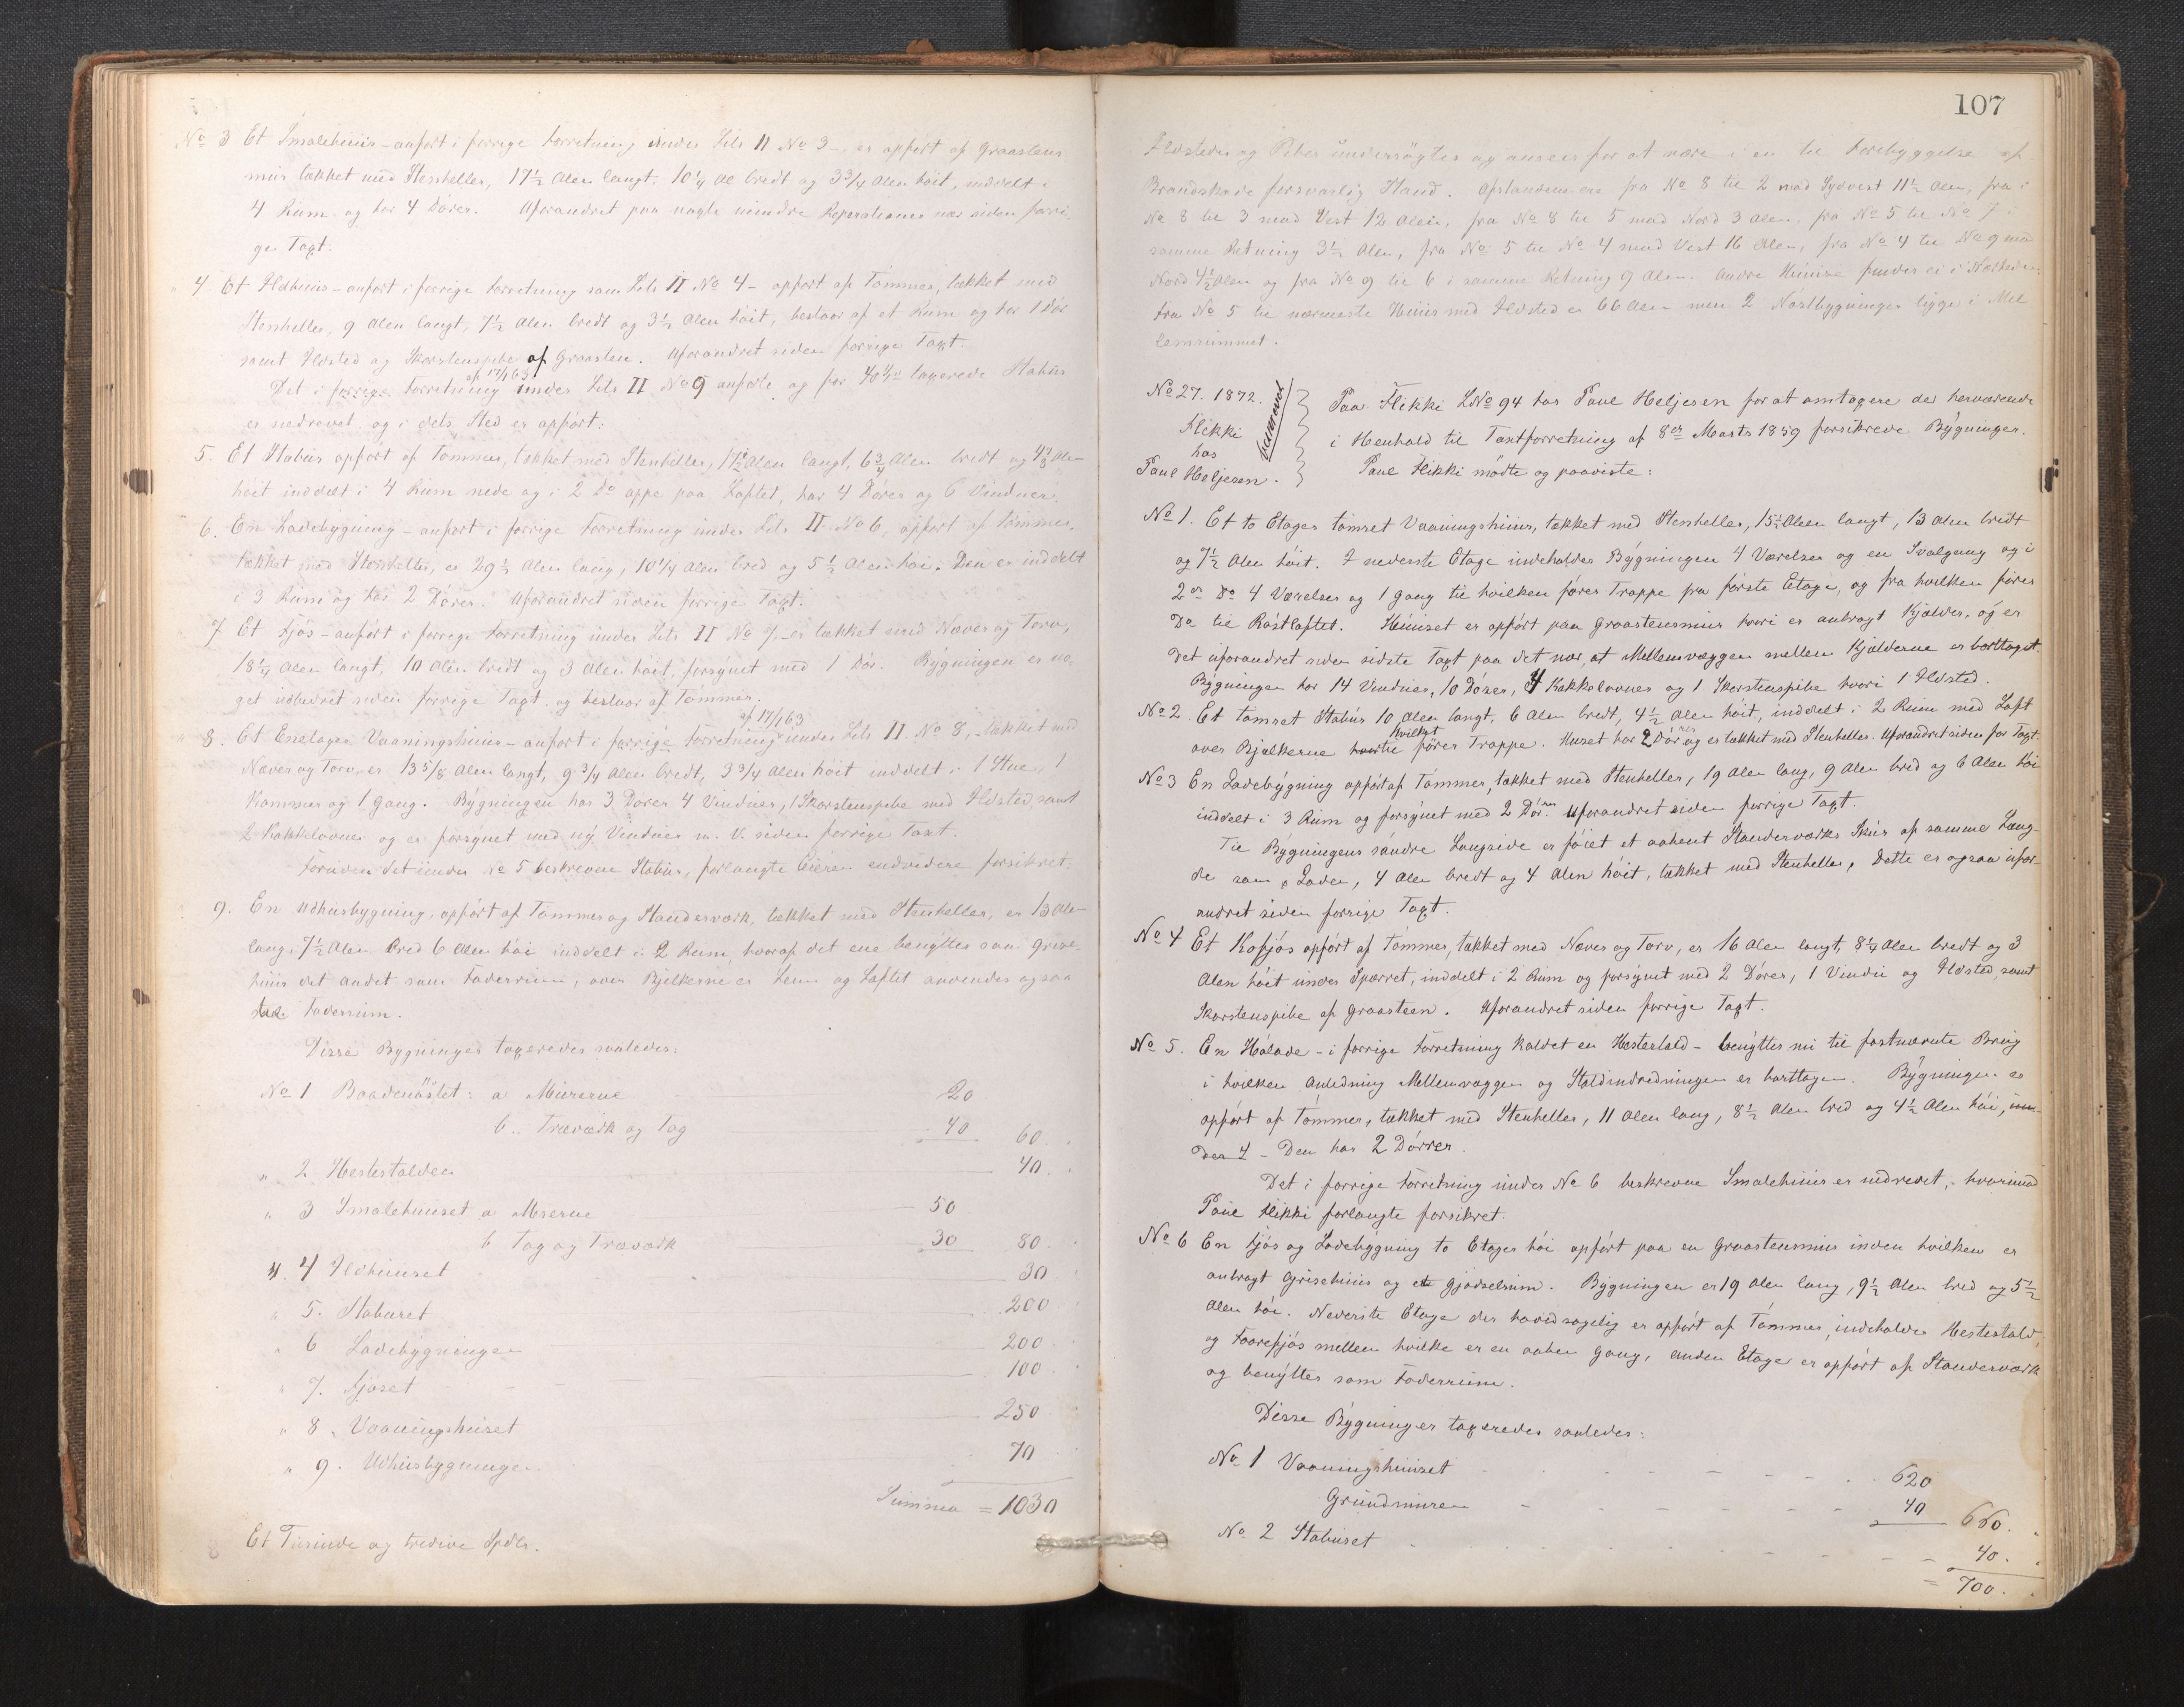 No 3 Et Smalehuus - anført i forrige Forretning under Litr II No 3 - er opført af Graastens
muur tækket med Steenheller, 17½ Alen langt, 10¼ Al bredt og 3¾ Alen høit, inddelt i
4 Rum og har 4 Dører. Uforandret paa nogle mindre Reparationer nær siden forri-
ge Taxt.
" 4 Et Ildhuus - anført i forrige Forretning som Litr II No 4 - opført af Tømmer, tækket med
Steenheller, 9 Alen langt, 7½ Alen bredt og 3½ Alen høit, bestaar af et Rum og har 1 Dør
samt Ildsted og Skorstenspibe af Graasten. Uforandret siden forrige Taxt.
Det i forrige Forretning af 17/1 63 under Litr II No 9 anførte og for 40 taxerede Stabuur
er nedrevet og i dets Sted er opført:
5. Et Stabuur opført af Tømmer, tækket med Steenheller, 17½ Alen langt, 6¾ Alen bredt og Alen
høit inddelt i 4 Rum nede og i 2 Do oppe paa Loftet, har 4 Dører og 6 Vinduer.
6. En Ladebygning - anført i forrige Forretning under Litr II No 6, opført af Tømmer,
tækket med Steenheller, er 29½ Alen lang, 10¼ Alen bred og 5½ Alen høi. Den er inddelt
i 3 Rum og har 2 Dører. Uforandret siden forrige Taxt.
7 Et Fjøs - anført i forrige Forretning under Litr II No 7 - er tækket med Næver og Torv,
18¼ Alen langt, 10 Alen bredt og 3 Alen høit, forsynet med 1 Dør. Bygningen er no-
get udbedret siden forrige Taxt og bestaar af Tømmer.
" 8. Et Enetages Vaaningshuus - anført i forrige Forretning af 17/1 63 under Litr II No 8, - tækket med
Næver og Torv, er 13 5/8 Alen langt, 9¾ Alen bredt, 3¾ Alen høit inddelt i 1 Stue, 1
Kammer og 1 Gang. Bygningen har 3 Dører 4 Vinduer, 1 Skorstenspibe med Ildsted, samt
2 Kakkelovne og er forsynet med ny Vinduer m. V. siden forrige Taxt.
Foruden det under No 5 beskrevne Stabuur, forlangte Eieren endvidere forsikret:
9. En Udhuusbygning, opført af Tømmer og Stænderværk, tækket med Steenheller, er 13 Alen
lang, 7½ Alen bred 6 Alen høi inddelt i 2 Rum, hvoraf det ene benyttes som Grise-
huus det andet som Foderrum, over Bjelkerne er Lem og Loftet anvendes ogsaa
Foderrum.
Disse Bygninger taxeredes saaledes:
No 1 Baadenøstet: a Murerne 20
b. Træværk og Tag 40 60.
" 2 Hestestalden 40.
" 3 Smalehuuset a Murerne 50
b Tag og Træværk 30 80.
". 4 Ildhuuset 30
" 5. Staburet 200
" 6 Ladebygningen 200
" 7. Fjøset 100
" 8. Vaaningshuset 250
" 9. Udhusbygningen 70
Summa = 1030
Et Tusinde og tredive Spdlr.
107
Ildsteder og Piber undersøgtes og ansees for at være i en til Forebyggelse af
Brandskade forsvarlig Stand. Afstandene ere fra No 8 til 2 mod Sydvest 11½ Alen, fra
No 8 til 3 mod Vest 12 Alen, fra No 8 til 5 mod Nord 3 Alen, fra No 5 til No 7 i
samme Retning 3½ Alen, fra No 5 til No 4 mod Vest 16 Alen, fra No 4 til No 9 mod
Nord 4½ Alen og fra No 9 til 6 i samme Retning 9 Alen. Andre Huuse findes ei i Nærheden.
Fra No 5 til nærmeste Huus med Ildsted er 66 Alen men 2 Nøstbygninger ligge i Mel
lemrummet.
No 27. 1872.
Flikki
hos
Poul Heljesen.
Paa Flikki LNo 94 hos Poul Heljesen for at omtaxere de herværende
i Henhold til Taxtforretning af 8de Marts 1859 forsikrede Bygninger.
Poul Flikki mødte og paaviste:
No 1. Et to Etages tømret Vaaningshuus, tækket med Steenheller, 15½ Alen langt, 13 Alen bredt
og 7½ Alen høit. I nederste Etage indeholder Bygningen 4 Værelser og en Svalgang og i
2den Do 4 Værelser og 1 Gang til hvilken fører Trappe fra første Etage, og fra hvilken fører
Do til Røstloftet. Huuset er opført paa Graastensmuur hvori er anbragt Kjælder, og er
det uforandret siden sidste Taxt paa det nær, at Mellemvæggen mellem Kjælderne er borttaget.
Bygningen har 14 Vinduer, 10 Dører, 4 Kakkelovner og 1 Skorstenspibe hvori 1 Ildsted.
No 2. Et tømret Stabur 10 Alen langt, 6 Alen bredt, 4½ Alen høit, inddelt i 2 Rum med Loft
over Bjelkerne hvortil hvilket fører Trappe. Huset har 2 Dører og er tækket med Steenheller. Uforandret siden for Taxt.
No 3 En Ladebygning opført af Tømmer, tækket med Steenheller, 19 Alen lang, 9 Alen bred og 6 Alen høi
inddelt i 3 Rum og forsynet med 2 Dører. Uforandret siden forrige Taxt.
Til Bygningens søndre Langside er føiet et aabent Stænderværks Skuur af samme Læng-
de som Laden, 4 Alen bredt og 4 Alen høit, tækket med Steenheller, dette er ogsaa ufor-
andret siden forrige Taxt.
No 4 Et Kofjøs opført af Tømmer, tækket med Næver og Torv, er 16 Alen langt, 8¼ Alen bredt og 3
Alen høit under Sparret, inddelt i 2 Rum og forsynet med 2 Dører, 1 Vindu og Ildsted samt
Skorstenspibe af Graasteen. Uforandret siden forrige Taxt.
No 5. En Hølade - i forrige Forretning kaldet en Hestestald - benyttes nu til fastnævnte Brug
i hvilken Anledning Mellemvæggen og Staldindredningen er borttagen. Bygningen er
opført af Tømmer, tækket med Steenheller, 11 Alen lang, 8½ Alen bred og 4½ Alen høi, un-
der 4 - Den har 2 Dørrer.
Det i forrige Forretning under No 6 beskrevne Smalehuus er nedrevet, hvorimod
Poul Flikki forlangte forsikret.
No 6 En Fjøs og Ladebygning to Etager høi opført paa en Graastensmuur inden hvilken er
anbragt Grisehuus og et Gjødselrum. Bygningen er 19 Alen lang, 9½ Alen bred og 5½
Alen høi. Nederste Etage der hovedsagelig er opført af Tømmer, indeholder Hestestald,
og Faarefjøs mellem hvilke er en aaben Gang, anden Etage er opført af Stænderværk
og benyttes som Foderrum.
Disse Bygninger taxeredes saaledes:
No 1 Vaaningshuuset 620
Grundmuren 40 660.
No 2 Stabuuret 40.
= 700.